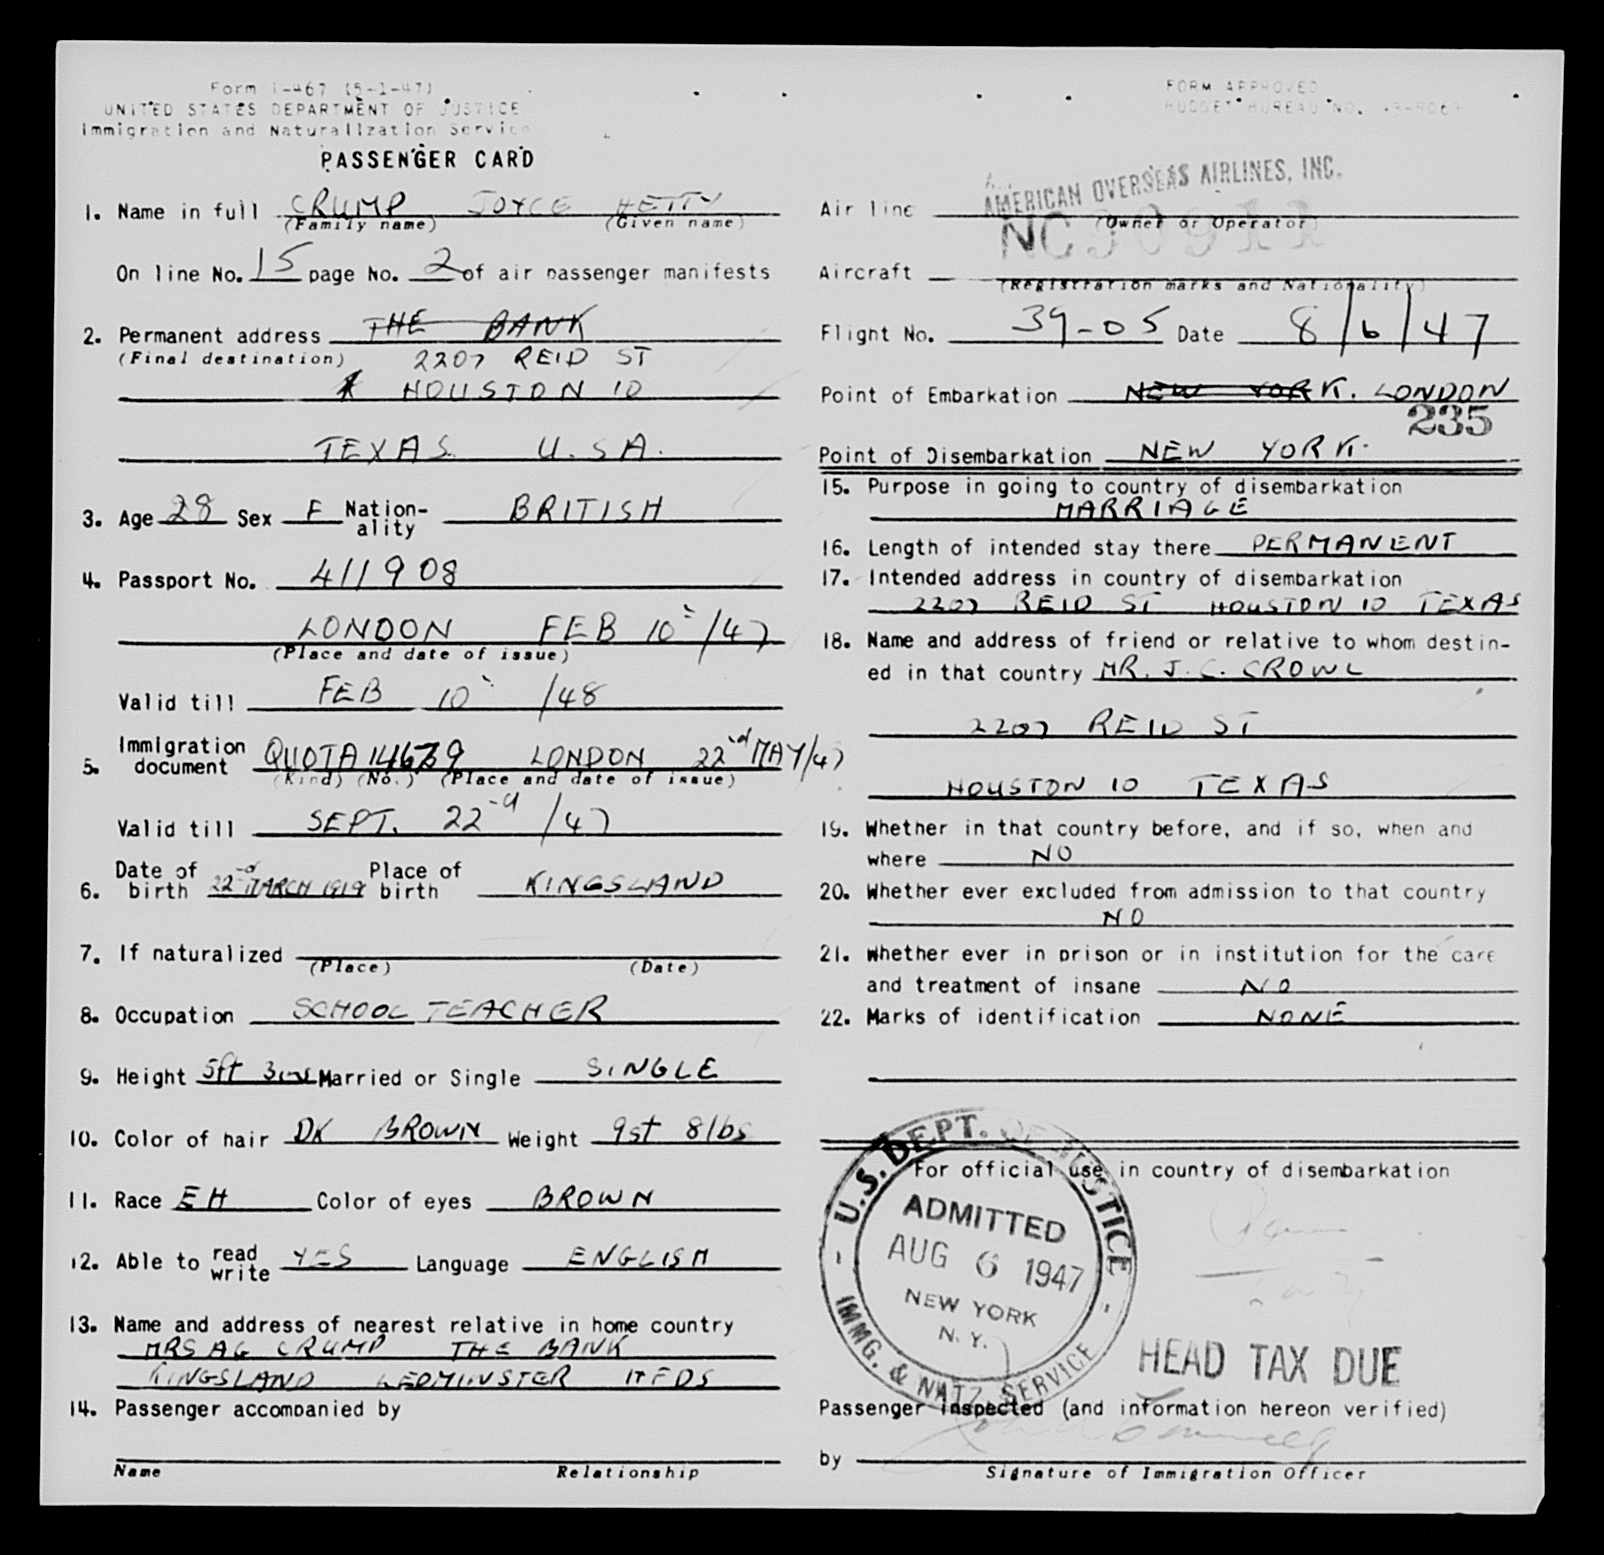 Form I-467 (5-1-47)
UNITED STATES DEPARTMENT OF JUSTICE
Immigration and Naturalization Service
PASSENGER CARD
1. Name in full CRUMP JOYCE HETTY
(Family name) (Given name)
On line No. 15 page No. 2 of air passenger manifests
2. Permanent address THE BANK
(Final destination) 2207 REID ST
HOUSTON 10
TEXAS U.S.A.
3. Age 28 Sex F Nation-ality BRITISH
4. Passport No. 411908
LONDON FEB 10 /47
(Place and date of issue)
Valid till FEB 10 /48
5. Immigration document QUOTA 14639 LONDON 22nd MAY/47
(Kind) (No.) (Place and date of issue)
Valid till SEPT. 22nd /47
6. Date of birth 22nd MARCH 1919 Place of birth KINGSLAND
7. If naturalized
(Place) (Date)
8. Occupation SCHOOL TEACHER
9. Height 5ft 3ins Married or Single SINGLE
10. Color of hair DK BROWN Weight 9st 8lbs
11. Race EH Color of eyes BROWN
12. Able to read write YES Language ENGLISH
13. Name and address of nearest relative in home country
MRS AG CRUMP THE BANK
KINGSLAND LEOMINSTER HFDS
14. Passenger accompanied by
Name Relationship
FORM APPROVED
BUDGET BUREAU NO.
AMERICAN OVERSEAS AIRLINES, INC.
Air line
(Owner or Operator)
NC90911
Aircraft
(Registration marks and Nationality)
Flight No. 39-05 Date 8/6/47
Point of Embarkation NEW YORK. LONDON
235
Point of Disembarkation NEW YORK.
15. Purpose in going to country of disembarkation
MARRIAGE
16. Length of intended stay there PERMANENT
17. Intended address in country of disembarkation
2207 REID ST HOUSTON 10 TEXAS
18. Name and address of friend or relative to whom destin-
ed in that country MR. J. C. CROWL
2207 REID ST
HOUSTON 10 TEXAS
19. Whether in that country before, and if so, when and
where NO
20. Whether ever excluded from admission to that country
NO
21. Whether ever in prison or in institution for the care
and treatment of insane NO
22. Marks of identification NONE
For official use in country of disembarkation
U.S. DEPT. OF JUSTICE
ADMITTED
AUG 6 1947
NEW YORK
N. Y.
IMMG. & NATZ. SERVICE
HEAD TAX DUE
Passenger inspected (and information hereon verified)
by
Signature of Immigration Officer